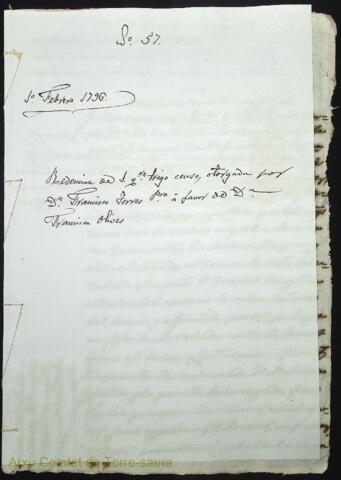 Nº 57.
1º Febrero 1796.
Redencion de 1. qª trigo censo, otorgada por
Dn Francisco Torres Pro á favor de Dª
Francisca Olives
Arxiu Comtat de Torre-saura